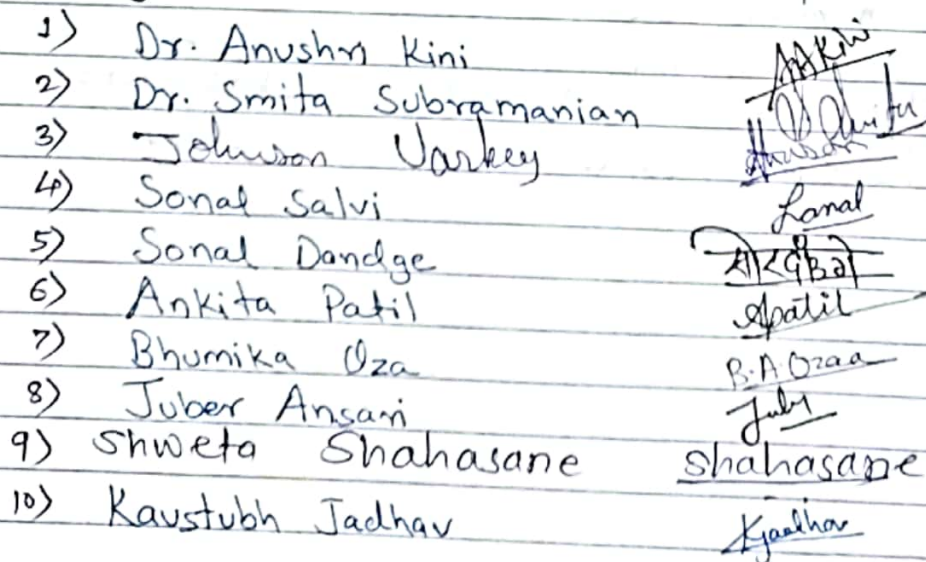 1) Dr. Anushri Kini AAKini
2) Dr. Smita Subramanian
3) Johnson Varkey
4) Sonal Salvi Sonal
5) Sonal Dandge
6) Ankita Patil Apatil
7) Bhumika Oza B.A.Ozaa
8) Juber Ansari
9) Shweta Shahasane Shahasane
10) Kaustubh Jadhav Kjadhav